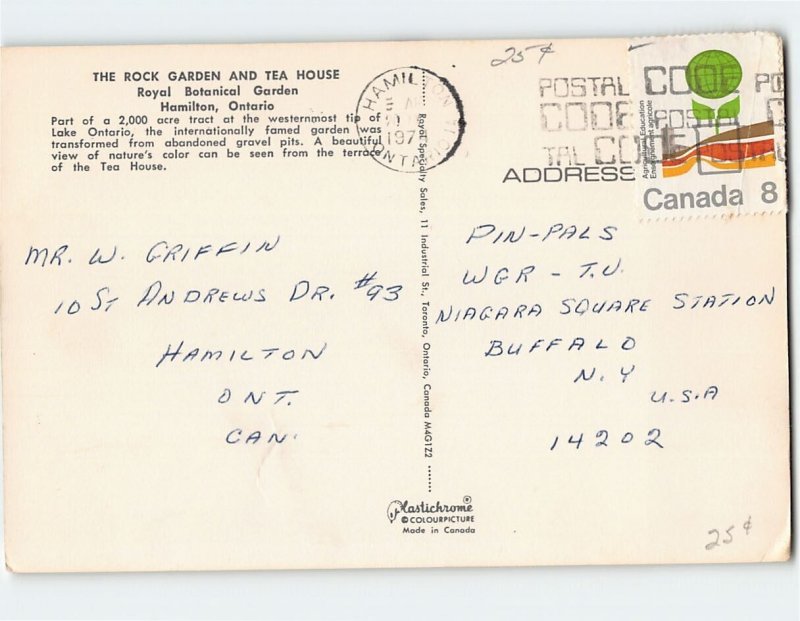 25¢
THE ROCK GARDEN AND TEA HOUSE
Royal Botanical Garden
Hamilton, Ontario
Part of a 2,000 acre tract at the westernmost tip of
Lake Ontario, the internationally famed garden was
transformed from abandoned gravel pits. A beautiful
view of nature's color can be seen from the terrace
of the Tea House.
HAMILTON
197
ONTARIO
POSTAL CODE PO
CODE POSTAL C
TAL CODE
Agricultural Education
Enseignement agricole
Canada 8
ADDRESS
MR. W. GRIFFIN
10 ST ANDREWS DR. #93
HAMILTON
ONT.
CAN.
Royal Specialty Sales, 11 Industrial St., Toronto, Ontario, Canada M4G1Z2
PIN-PALS
WGR - T.V.
NIAGARA SQUARE STATION
BUFFALO
N.Y
U.S.A
14202
Plastichrome®
© COLOURPICTURE
Made in Canada
25¢